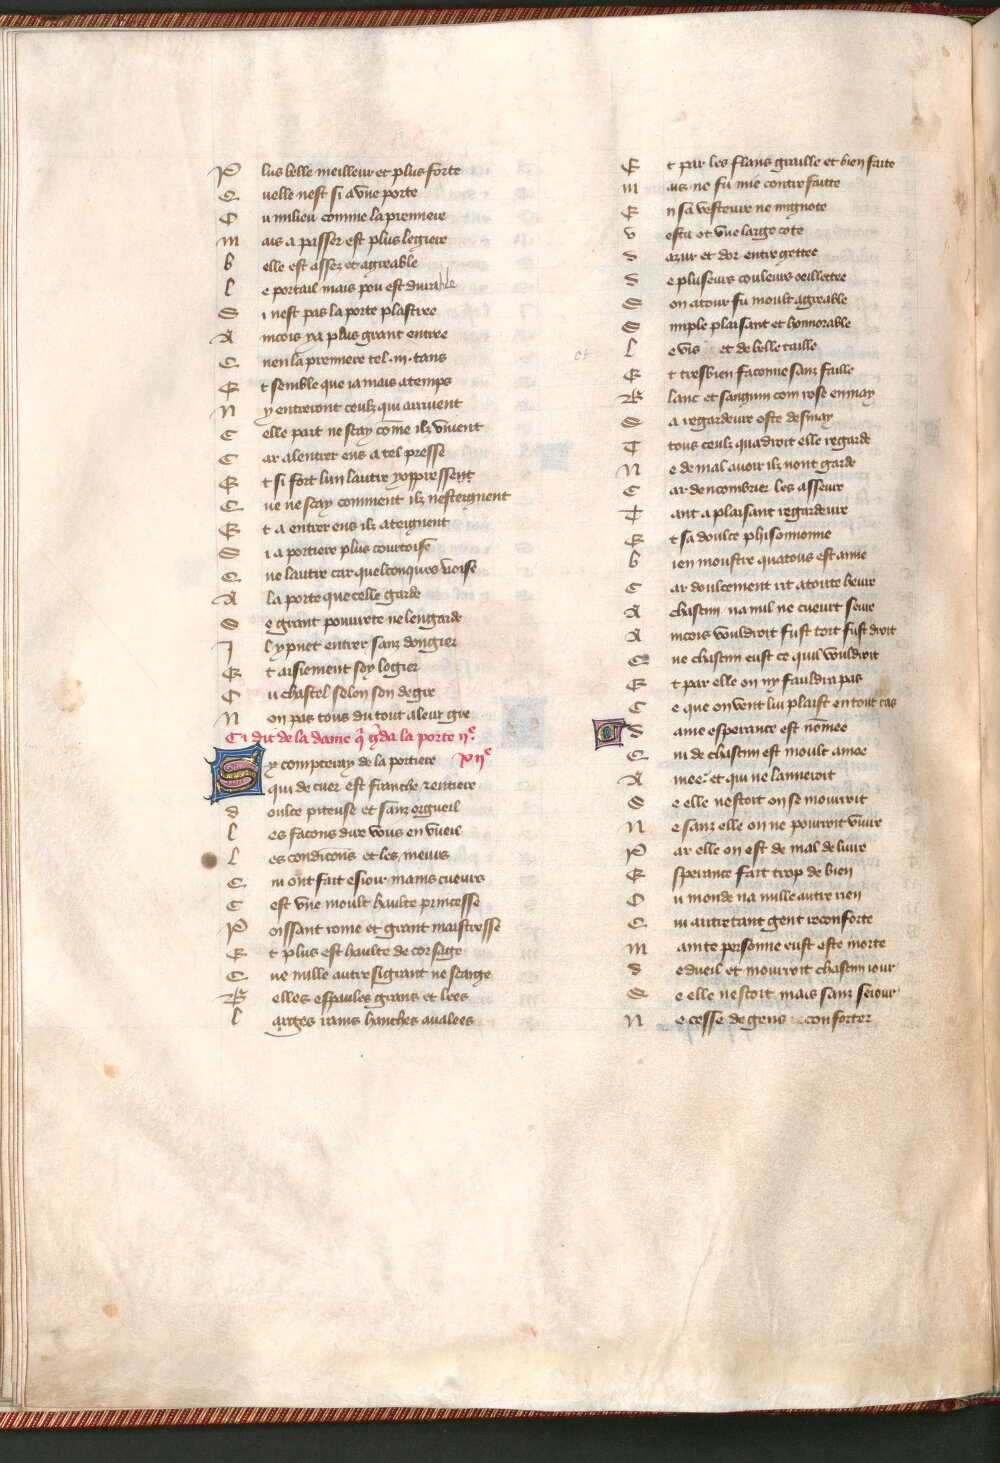 Plus belle meilleur et plus forte
Quelle nest si a vne porte
Ou milieu comme la premiere
Mais a passer est plus legiere
Belle est assez et agreable
Le portail mais pou est durable
Si nest pas la porte plastree
Aincois y a plus grant entree
Quen la premiere tel .m. tans
Et semble que iamais a temps
Ny entreront ceulz qui arriuent
Celle part ne scay cōme ilz viuent
Car a lentrer ens a tel presse
Et si fort lun lautre y oppressent
Que ne scay comment ilz nesteignent
Et a entrer ens ilz ateignent
Si a portiere plus courtoise
Que lautre car quelconques voise
A la porte que celle garde
Se grant pourete ne lengarde
Il y puet entrer sanz dongier
Et aisiement soy logier
Ou chastel selon son degre
Non pas tous du tout a leur gre
Ci dit de la dame q̄ ḡda la porte iiᵉ
Sy compteray de la portiere xiiᵉ
qui de cuer est franche & entiere
doulce piteuse et sanz orgueil
Les facons dire vous en vueil
Les condicōns et les meurs
Qui ont fait esiouir mains cueurs
Cest vne moult haulte princesse
Poissant royne et grant maistresse
Et plus est haulte de corsage
Que nulle autre si grant ne scarge
Belles espaules grans et lees
Larges rains hanches aualees
Et par les flans graille et bien faite
Mais ne fu mie contrefaitte
En sa vesteure ne mignote
Vestu ot vne large cote
Dazur et dor entregettee
De pluseurs couleurs oeillettee
Son atour fu moult agreable
Simple plaisant et honnorable
Le vis et de belle taille
ot
Et tresbien faconne sanz faille
Blanc et sanguin com rose en may
Sa regardeure oste desmay
A tous ceulz qua droit elle regarde
Ne de mal auoir ilz nont garde
Car dencombrier les asseure
Tant a plaisant regardeure
Et sa doulce phisonomie
Bien monstre qua tous est amie
Car doulcement rit a toute heure
A chascun na nul ne cueurt seure
Aincois vouldroit fust tort fust droit
Que chascun eust ce quil vouldroit
Et par elle on ny fauldra pas
Ce que on vent lui plaist en tout cas
Dame esperance est nōmee
Qui de chascun est moult amee
Amee et qui ne lameroit
Se elle nestoit on se mourroit
Ne sanz elle on ne pourroit viure
Par elle on est de mal deliure
Esperance fait trop de bien
Ou monde na nulle autre rien
Qui autre tant gent reconforte
Mainte personne eust este morte
De dueil et mourroit chascun iour
Se elle nestoit mais sanz seiour
Ne cesse de gens reconforter